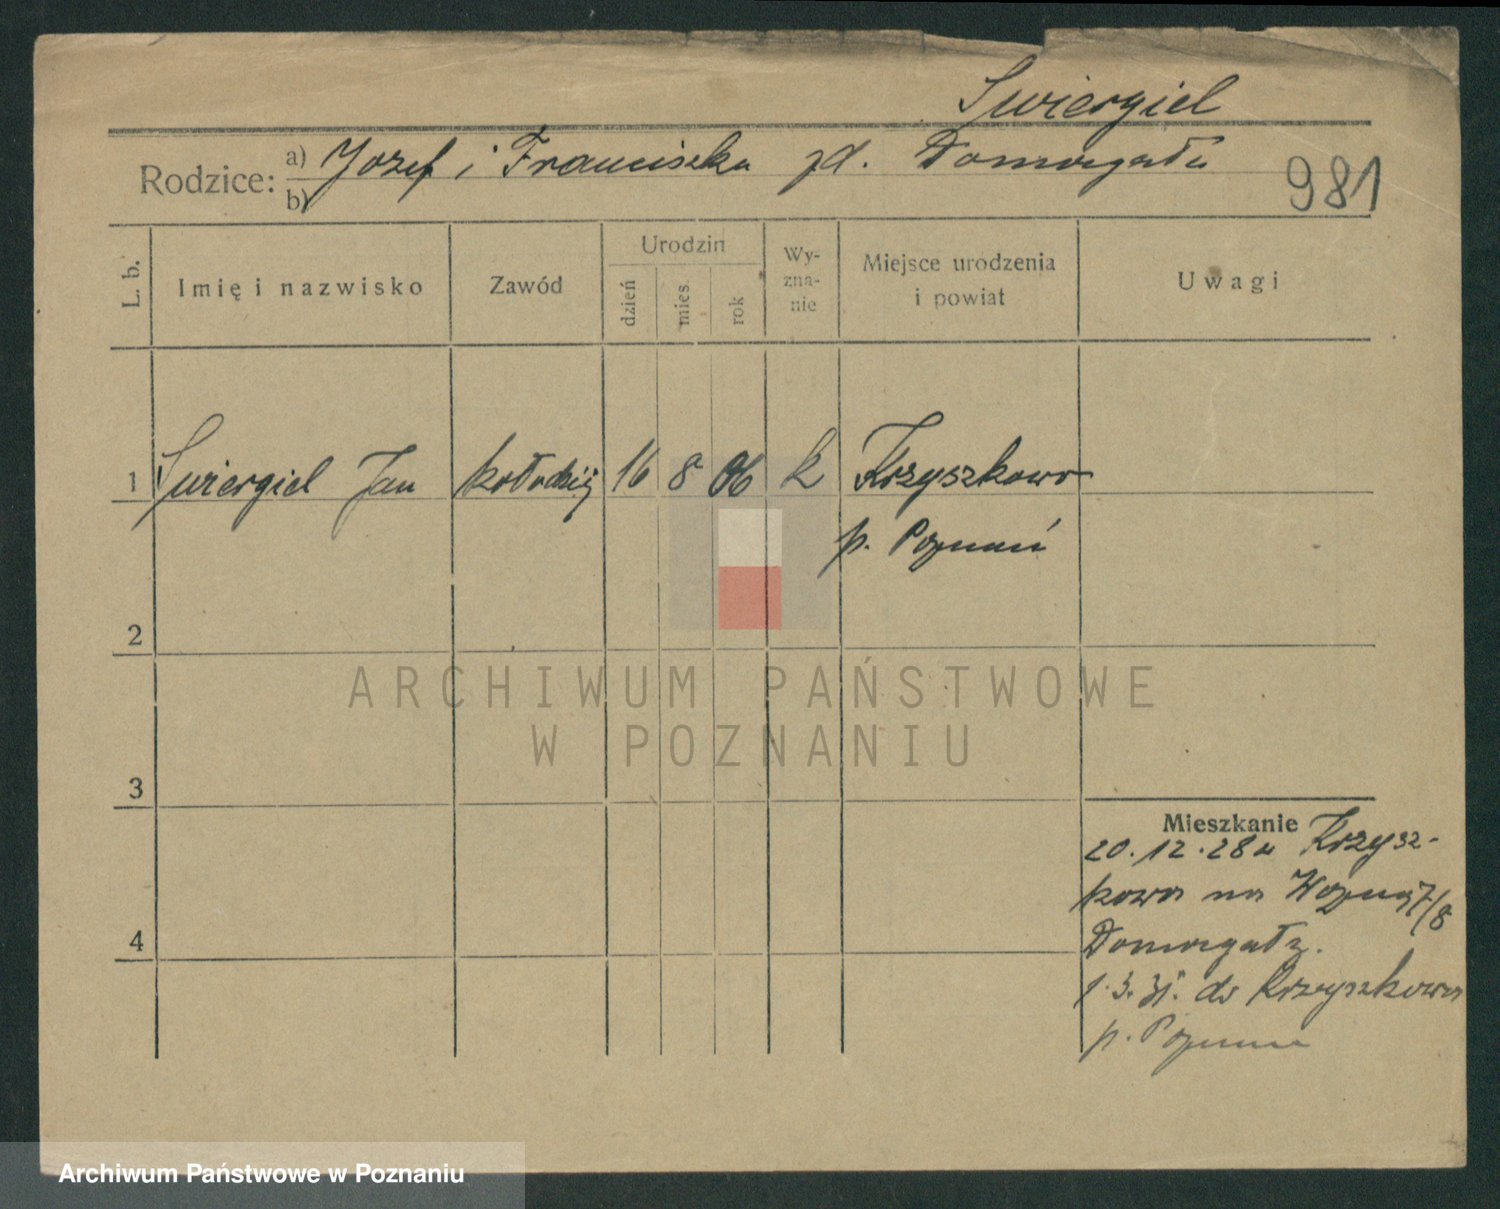 Swiergiel
Rodzice: a) Józef i Franciszka zd. Domagała
b)
981
L. b.
Imię i nazwisko
Zawód
Urodzin
dzień
mies.
rok
Wy-
zna-
nie
Miejsce urodzenia
i powiat
Uwagi
1 Swiergiel Jan kołodziej 16 8 06 k Krzyszkowo
p. Poznań
2
ARCHIWUM PAŃSTWOWE
W POZNANIU
3
Mieszkanie
20.12.28 z Krzysz-
kowo na 7/8
4
1.3.31. do Krzyszkowo
p. Poznań
Archiwum Państwowe w Poznaniu